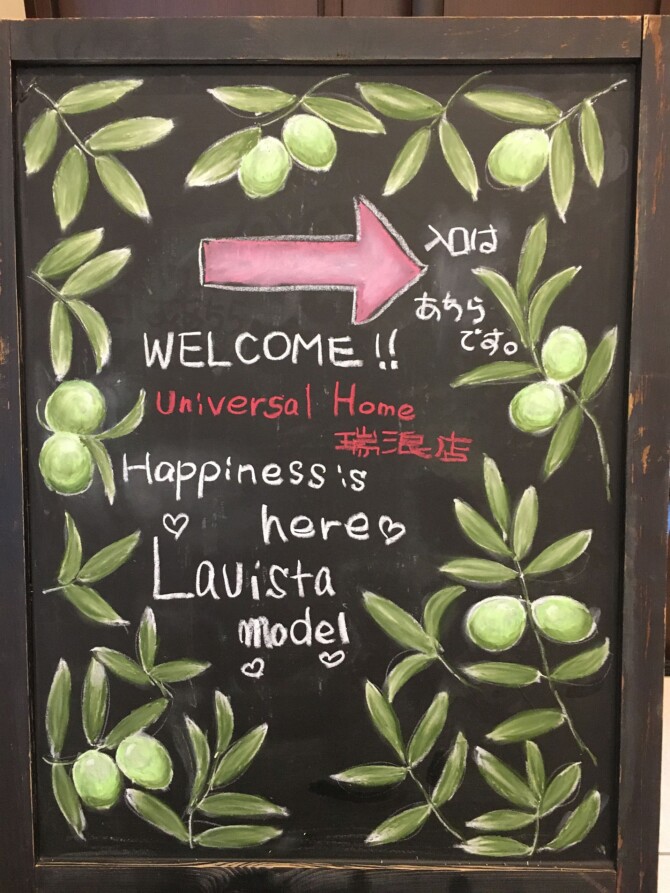 入口は
あちら
です。
WELCOME!!
Universal Home
瑞浪店
Happiness is
here♡
Lavista
model